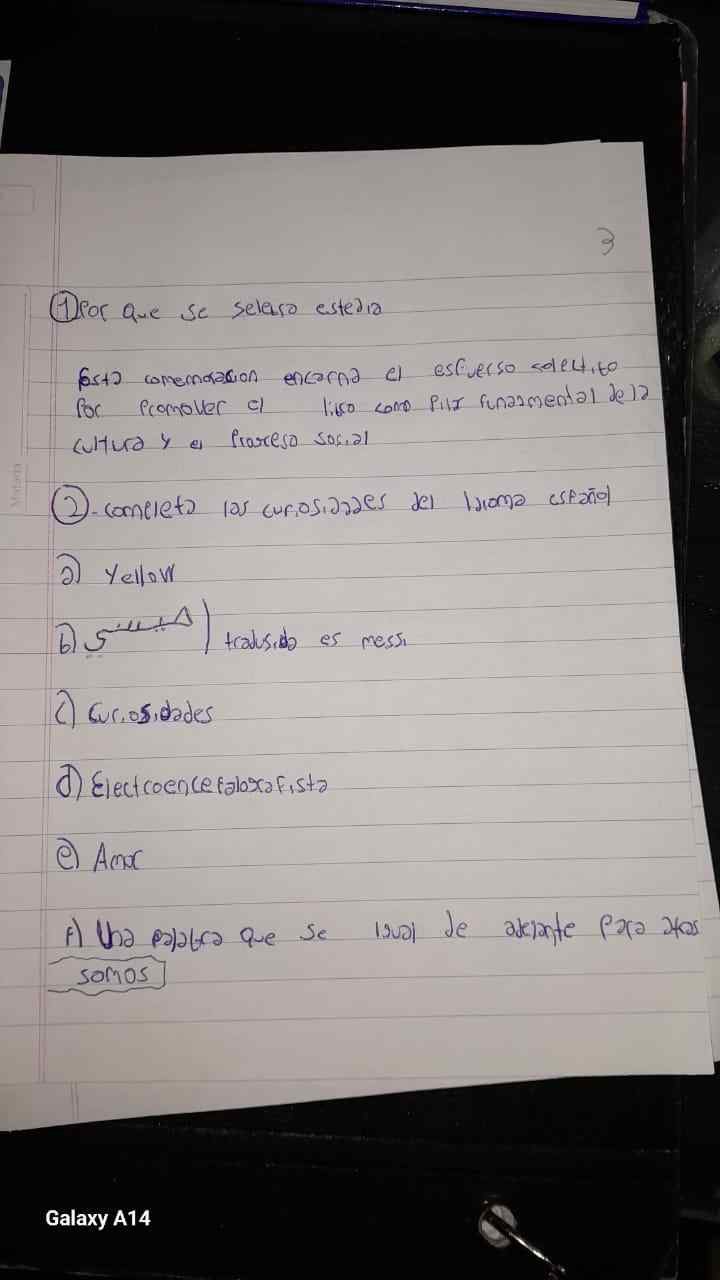 3
① Por que se selebra este dia
Esta comemorasion encarna el esfuerso colectito
Por Promover el libro como Pilar funamental de la
cultura y el Proxeso social
②-completa las curiosidades del Idioma español
a) Yellow
b) ميسي | tradusido es messi
c) Curiosidades
d) Electroencefalografista
e) Amor
f) Una palabra que se igual de adelante para atras
somos
Galaxy A14